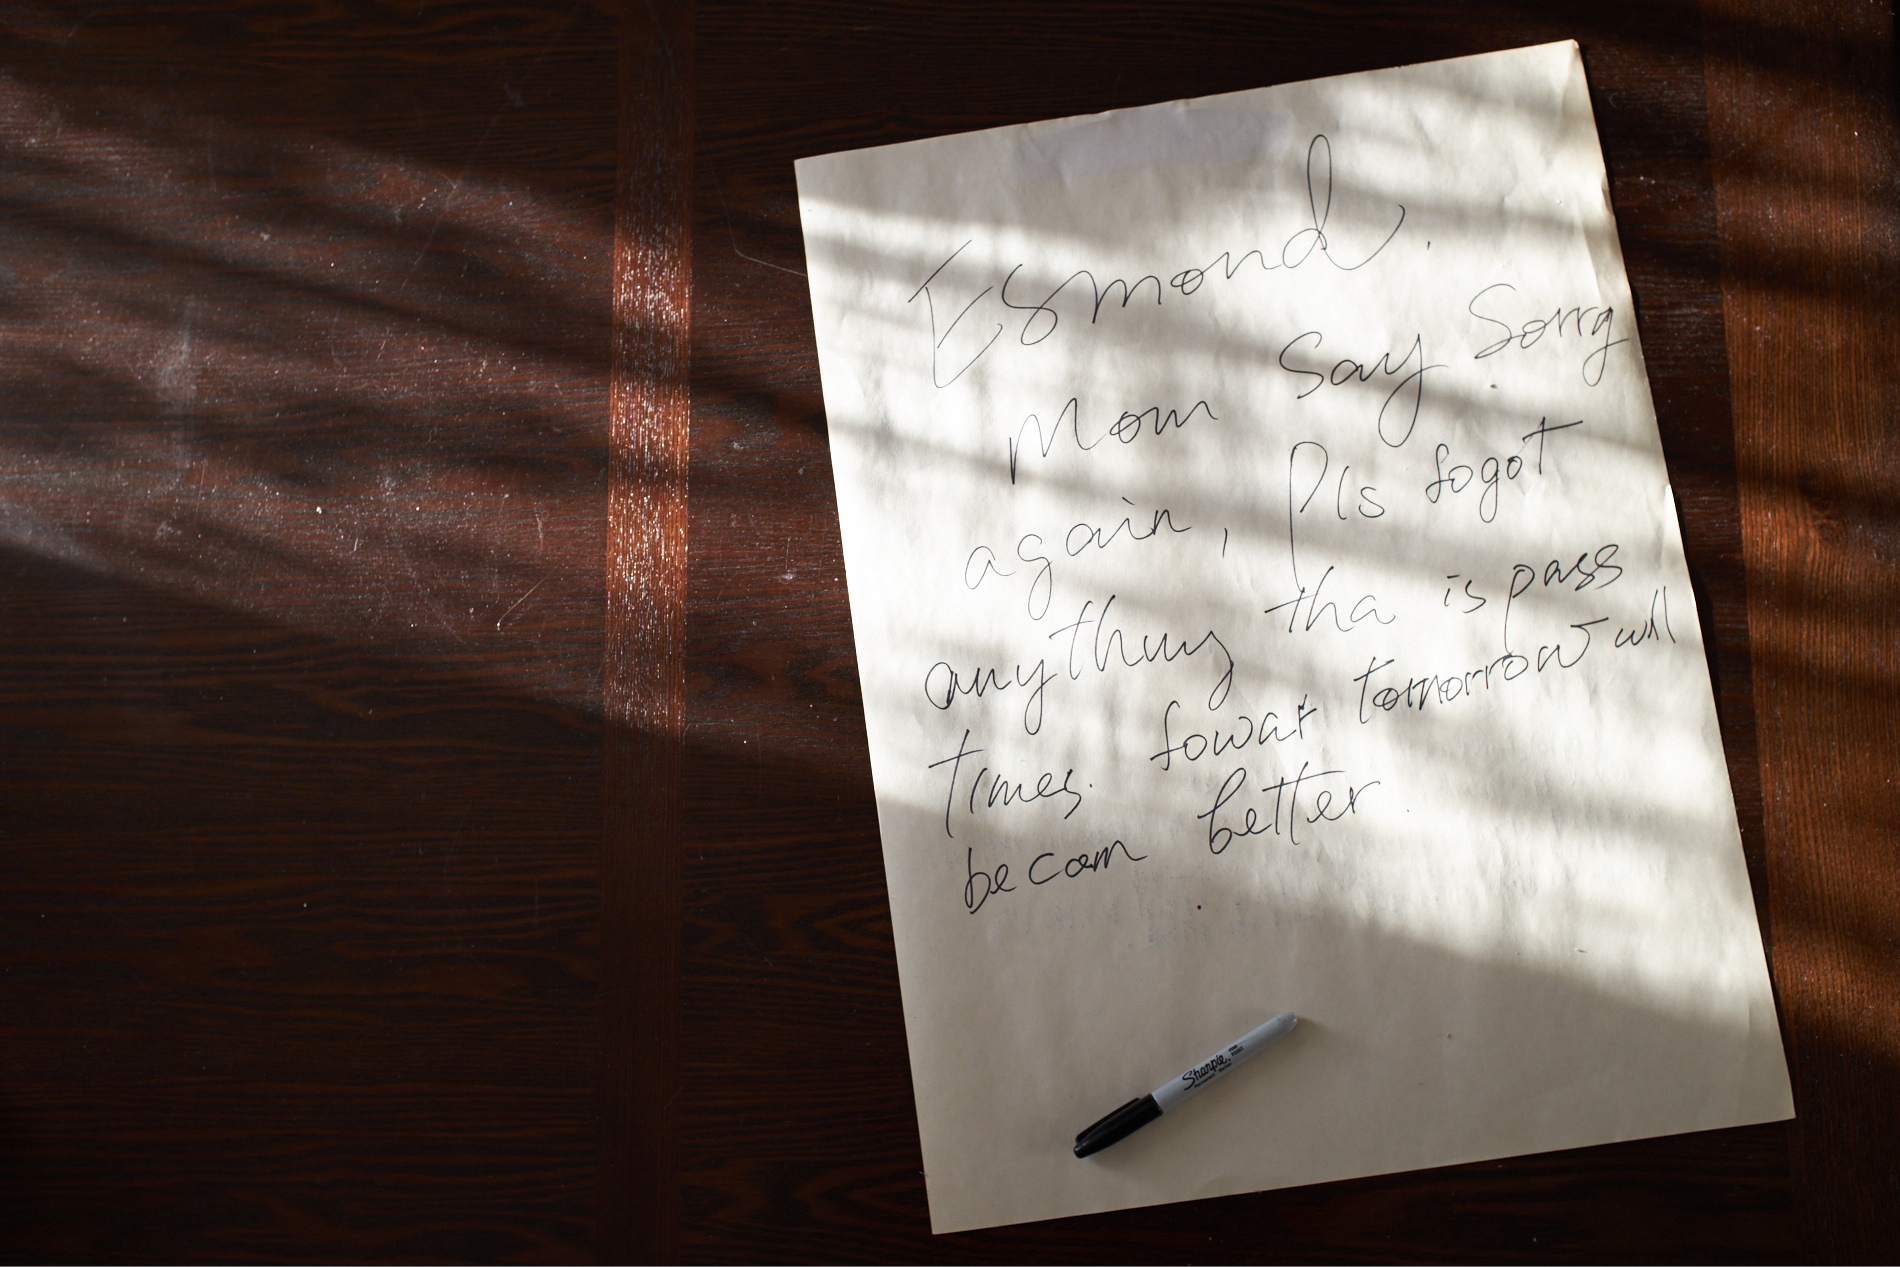 Esmond.
Mom Say Sorry
again, Pls fogot
anything tha is pass
times. fowat tomorrow will
becam better.
Sharpie